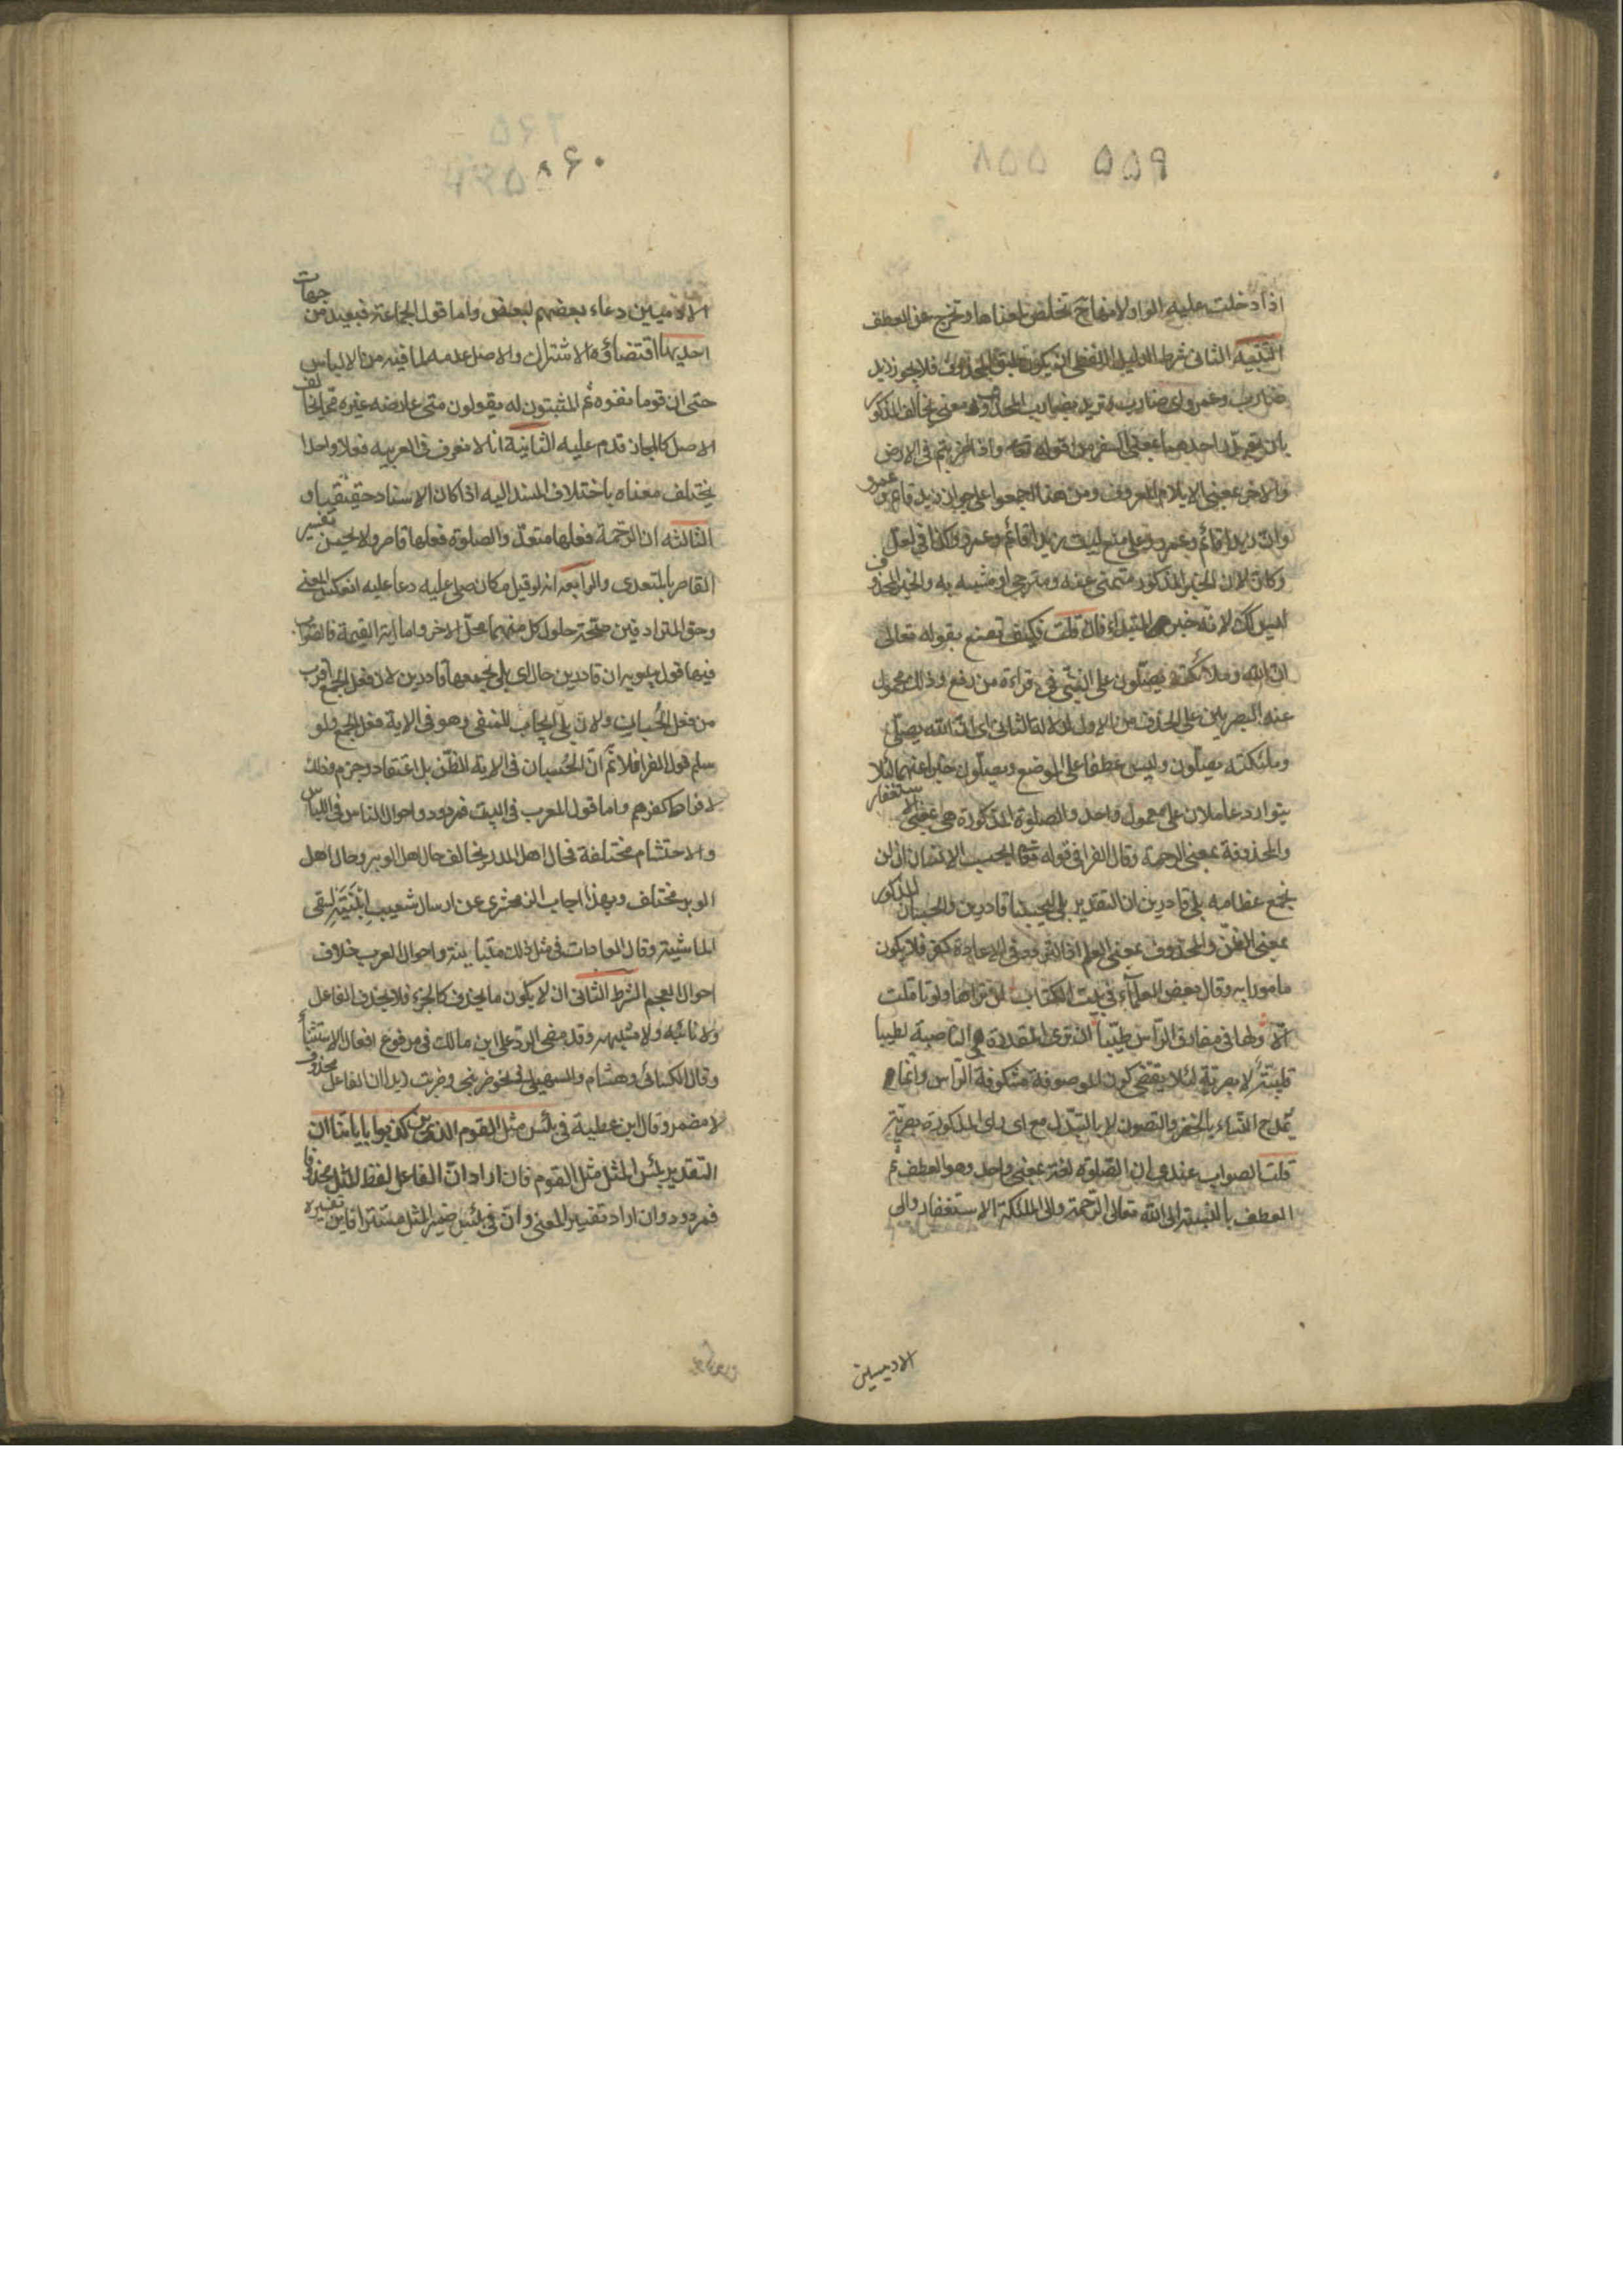 ۵۵۹ ۵۵۸
اذا دخلت عليه الواو لانها ح تخلص لمعناها وتخرج عن العطف
التنبيه الثانى شرط الدليل اللفظى ان يكون طبق المحذوف فلا يجوز زيد
ضارب وعمرو اى ضارب تريد بضارب المحذوف معنى يخالف المذكور
بان يقدر احدهما بمعنى السفر من قوله تعا واذا ضربتم فى الارض
والاخر بمعنى الايلام المعروف ومن هنا اجمعوا على جواز زيد قائم وعمرو
وان زيدا قائم وعمرو وعلى منع ليت زيدا قائم وعمرو وكذا فى لعل
وكان لان الخبر المذكور متمنى عنه او مترجى او مشبه به والخبر المحذوف
ليس كك لانه خبر المبتداء فان قلت فكيف تصنع بقوله تعالى
ان الله وملائكته يصلون على النبى فى قراءة من رفع وذلك محمول
عند البصريين على الحذف من الاول لدلالة الثانى اى ان الله يصلى
وملئكته يصلون وليس عطفا على الموضع ويصلون خبرا عنهما لئلا
يتوارد عاملان على معمول واحد والصلوة المذكورة هى بمعنى الاستغفار
والمحذوفة بمعنى الرحمة وقال الفرا فى قوله تعا ايحسب الانسان ان لن
نجمع عظامه بلى قادرين ان التقدير بلى ليحسبنا قادرين والحسبان المذكور
بمعنى الظن والمحذوف بمعنى العلم اذ التردد فى الاعادة كفر فلا يكون
مامورا به وقال بعض العلماء فى بيت الكتاب لن تراها ولو تاملت
الا ولها فى مفارق الراس طيبا ان ترى المقدرة الناصبة لطيبا
قلبية لا بصرية لئلا يقتضى كون الموصوفة مكشوفة الراس وانما
تمدح النساء بالخفر والتصون لا بالتبذل مع ان راى المذكورة بصرية
قلت الصواب عندى ان الصلوة لغة بمعنى واحد وهو العطف ثم
العطف بالنسبة الى الله تعالى الرحمة والى الملئكة الاستغفار والى
الادميين
۵۶۰
الادميين دعاء بعضهم لبعض واما قول الجماعة فبعيد من جهات
احديها اقتضاؤه الاشتراك والاصل عدمه لما فيه من الالباس
حتى ان قوما نفوه ثم المثبتون له يقولون متى عارضه غيره مما يخالف
الاصل كالمجاز قدم عليه الثانية انا لا نعرف فى العربيه فعلا واحدا
يختلف معناه باختلاف المسند اليه اذا كان الاسناد حقيقيا و
الثالثه ان الرحمة فعلها متعد والصلوة فعلها قاصر ولا يحسن تفسير
القاصر بالمتعدى والرابعه انه لو قيل مكان صلى عليه دعا عليه انعكس المعنى
وحق المترادفين صحة حلول كل منهما محل الاخر واما اية القيمة فالصواب
فيها قول سيبويه ان قادرين حال اى بلى نجمعها قادرين لان فعل الجمع اقرب
من فعل الحسبان ولان بلى ايجاب للمنفى وهو فى الاية فعل الجمع ولو
سلم قول الفرا فلا ثم ان الحسبان فى الاية للظن بل اعتقاد وجزم وذلك
لافراط كفرهم واما قول المعرب فى البيت فمردود واحوال الناس فى اللباس
والاحتشام مختلفة فحال اهل المدر يخالف حال اهل الوبر وحال اهل
الوبر مختلف وبهذا اجاب الزمخشرى عن ارسال شعيب ابنتيه لسقى
الماشية وقال العادات فى مثل ذلك متباينة واحوال العرب خلاف
احوال العجم الشرط الثانى ان لا يكون ما يحذف كالجزء فلا يحذف الفاعل
ولا نائبه ولا مشبهه وقد مضى الرد على ابن مالك فى مرفوع افعال الاستثناء
وقال الكسائى وهشام والسهيلى فى نحو ضربنى وضربت زيدا ان الفاعل محذوف
لا مضمر وقال ابن عطية فى بئس مثل القوم الذين كذبوا باياتنا ان
التقدير بئس المثل مثل القوم فان اراد ان الفاعل لفظ المثل محذوفا
فمردود وان اراد تفسير المعنى وان فى بئس ضمير المثل مستترا فاين تفسيره